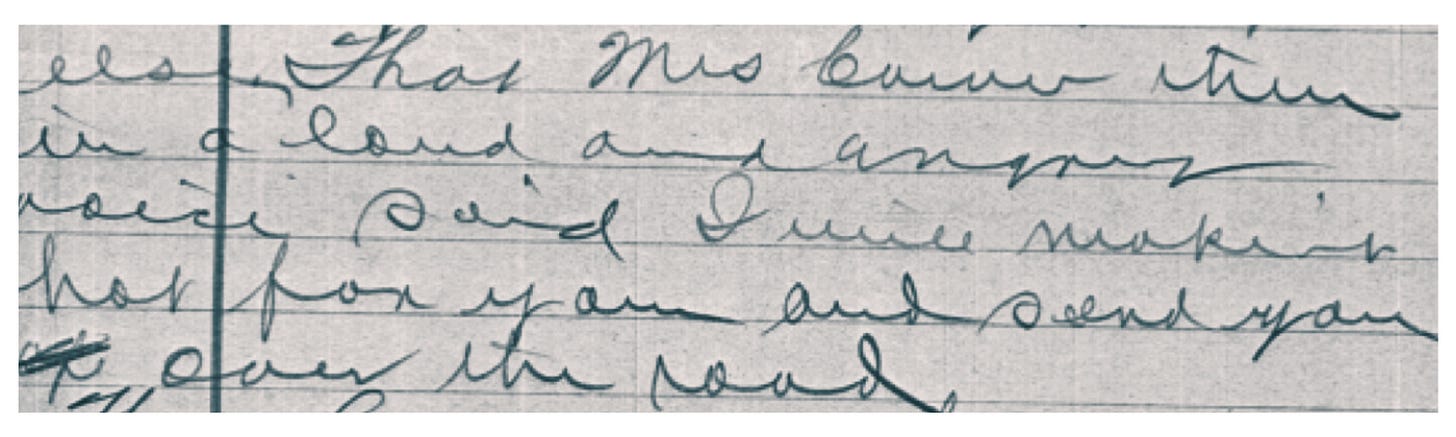 else, That Mrs then
in a loud and angry
voice said I will make it
hot for you and send you
over the road,